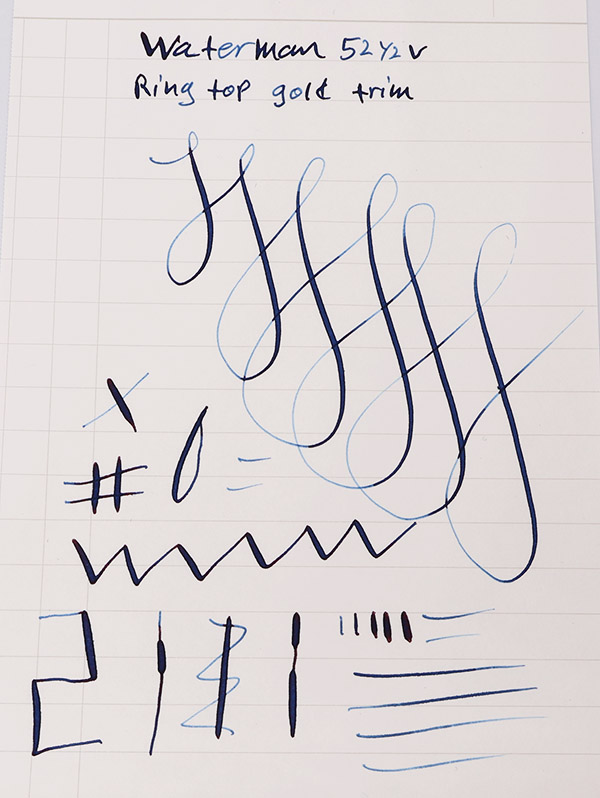 Waterman 52 1/2 v
Ring top gold trim